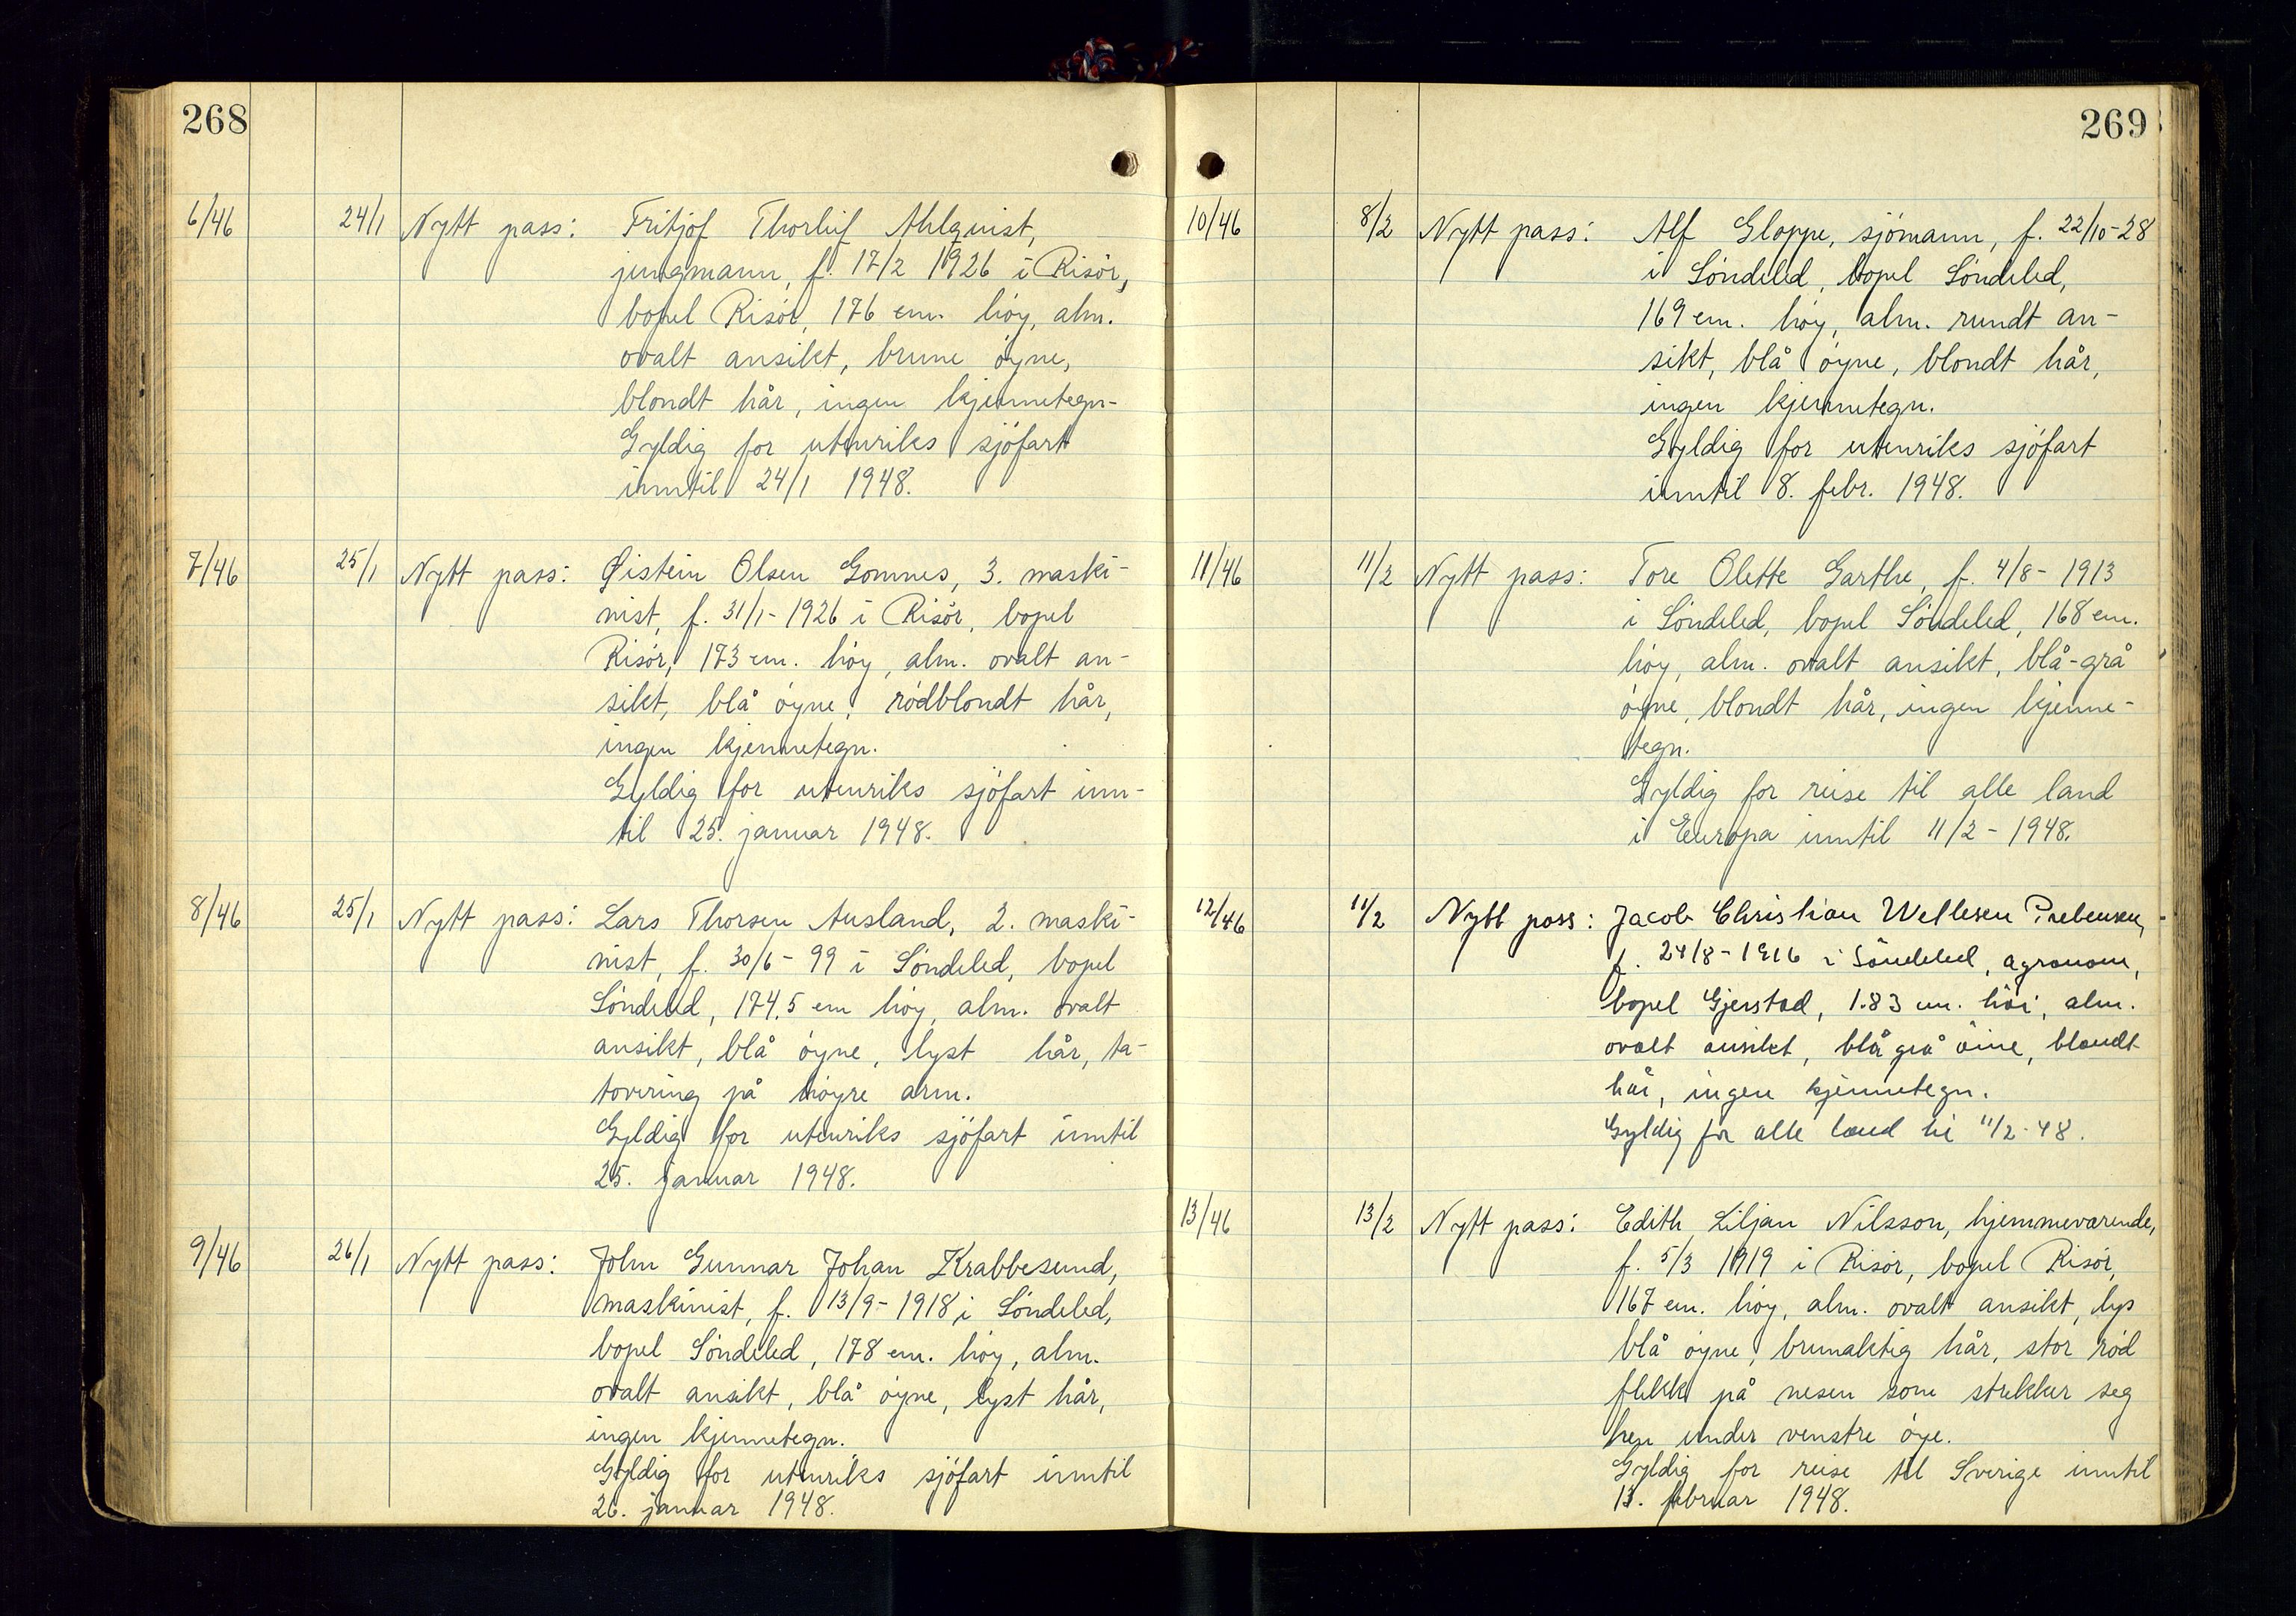 268
6/46 24/1 Nytt pass: Fritjof Thorleif Ahlquist,
jungmann, f. 17/2 1926 i Risör,
bopel Risör, 176 cm. höy, alm.
ovalt ansikt, brune öyne,
blondt hår, ingen kjennetegn.
Gyldig for utenriks sjöfart
inntil 24/1 1948.
7/46 25/1 Nytt pass: Øistein Olsen Gomnes, 3. maski-
nist, f. 31/1-1926 i Risör, bopel
Risör, 173 cm. höy, alm. ovalt an-
sikt, blå öyne, rödblondt hår,
ingen kjennetegn.
Gyldig for utenriks sjöfart inn-
til 25. januar 1948.
8/46 25/1 Nytt pass: Lars Thorsen Ausland, 2. maski-
nist, f. 30/6-99 i Söndeled, bopel
Söndeled, 174,5 cm höy, alm. ovalt
ansikt, blå öyne, lyst hår, ta-
tovering på höyre arm.
Gyldig for utenriks sjöfart inntil
25. januar 1948.
9/46 26/1 Nytt pass: John Gunnar Johan Krabbesund,
maskinist, f. 13/9-1918 i Söndeled,
bopel Söndeled, 178 cm. höy, alm.
ovalt ansikt, blå öyne, lyst hår,
ingen kjennetegn.
Gyldig for utenriks sjöfart inntil
26. januar 1948.
269
10/46 8/2 Nytt pass: Alf Gloppe, sjömann, f. 22/10-28
i Söndeled, bopel Söndeled,
169 cm. höy, alm. rundt an-
sikt, blå öyne, blondt hår,
ingen kjennetegn.
Gyldig for utenriks sjöfart
inntil 8. febr. 1948.
11/46 11/2 Nytt pass: Tore Olette Garthe, f. 4/8-1913
i Söndeled, bopel Söndeled, 168 cm.
höy, alm. ovalt ansikt, blå-grå
öyne, blondt hår, ingen kjenne-
tegn.
Gyldig for reise til alle land
i Europa inntil 11/2-1948.
12/46 11/2 Nytt pass: Jacob Christian Wellesen Prebensen,
f. 24/8-1916 i Söndeled, agronom,
bopel Gjerstad, 1.83 cm. höi, alm.
ovalt ansikt, blå grå öine, blondt
hår, ingen kjennetegn.
Gyldig for alle land til 11/2-48.
13/46 13/2 Nytt pass: Edith Liljan Nilsson, hjemmeværende,
f. 5/3 1919 i Risör, bopel Risör,
167 cm. höy, alm. ovalt ansikt, lys
blå öyne, brunaktig hår, stor röd
flekk på nesen som strekker seg
hen under venstre öye.
Gyldig for reise til Sverige inntil
13. februar 1948.